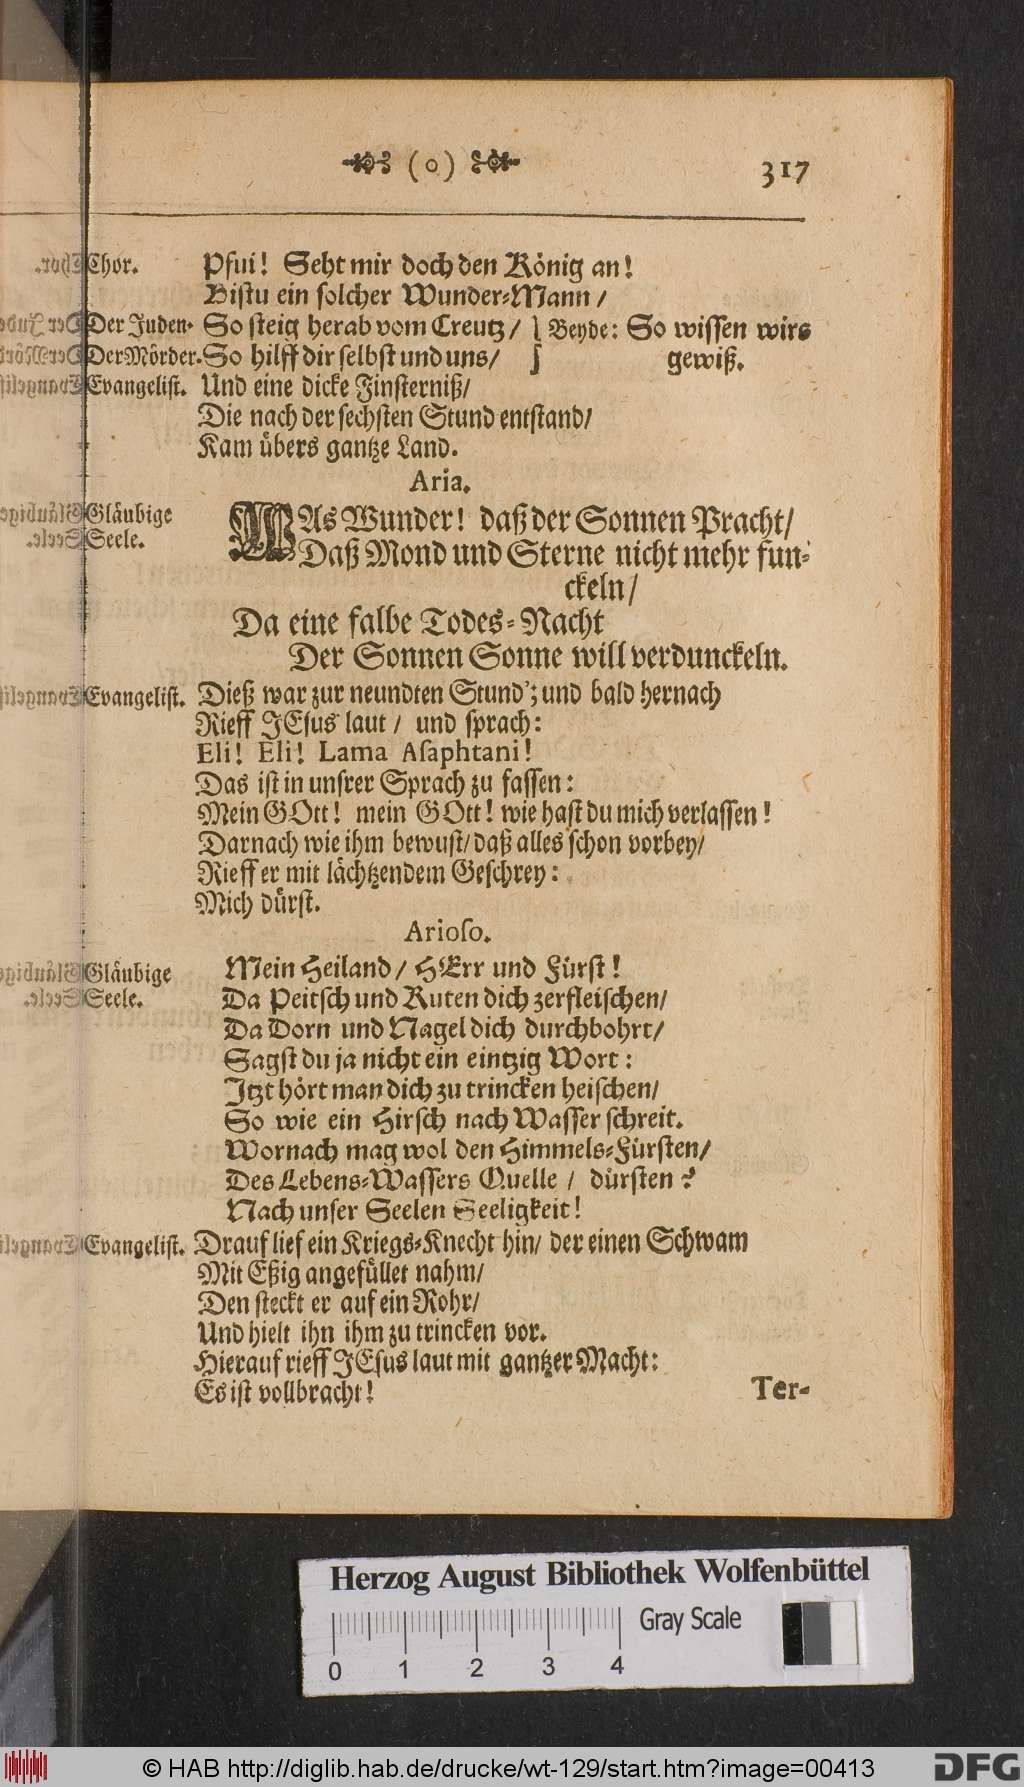 (o) 317
Chor. Pfui! Seht mir doch den König an!
Bistu ein solcher Wunder-Mann /
Der Juden. So steig herab vom Creutz / } Beyde: So wissen wirs
Der Mörder. So hilff dir selbst und uns/ gewiß.
Evangelist. Und eine dicke Finsterniß/
Die nach der sechsten Stund entstand/
Kam übers gantze Land.
Aria.
Gläubige WAs Wunder! daß der Sonnen Pracht/
Seele. Daß Mond und Sterne nicht mehr fun-
ckeln/
Da eine falbe Todes-Nacht
Der Sonnen Sonne will verdunckeln.
Evangelist. Dieß war zur neundten Stund'; und bald hernach
Rieff JEsus laut / und sprach:
Eli! Eli! Lama Asaphtani!
Das ist in unsrer Sprach zu fassen:
Mein GOtt! mein GOtt! wie hast du mich verlassen!
Darnach wie ihm bewust/ daß alles schon vorbey/
Rieff er mit lächtzendem Geschrey:
Mich dürst.
Arioso.
Gläubige Mein Heiland / HErr und Fürst!
Seele. Da Peitsch und Ruten dich zerfleischen/
Da Dorn und Nagel dich durchbohrt/
Sagst du ja nicht ein eintzig Wort:
Jtzt hört man dich zu trincken heischen/
So wie ein Hirsch nach Wasser schreit.
Wornach mag wol den Himmels-Fürsten/
Des Lebens-Wassers Quelle / dürsten?
Nach unser Seelen Seeligkeit!
Evangelist. Drauf lief ein Kriegs-Knecht hin/ der einen Schwam
Mit Eßig angefüllet nahm/
Den steckt er auf ein Rohr/
Und hielt ihn ihm zu trincken vor.
Hierauf rieff JEsus laut mit gantzer Macht:
Es ist vollbracht!
Ter-
Herzog August Bibliothek Wolfenbüttel
Gray Scale
0 1 2 3 4
© HAB http://diglib.hab.de/drucke/wt-129/start.htm?image=00413
DFG